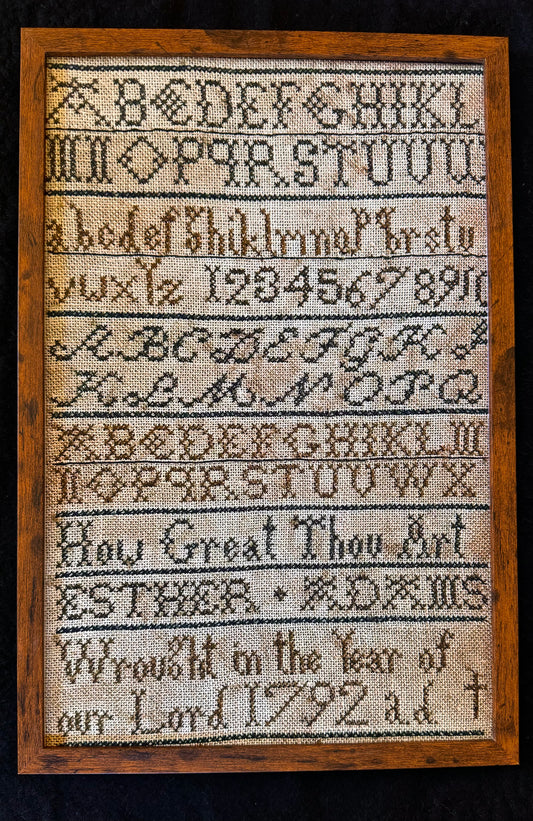 ABCDEFGHIKL
MNOPQRSTUVW
abcdefghiklmnopqrstu
vwxyz 12345678910
ABCDEFGH
KLMNOPQ
ABCDEFGHIKLM
NOPQRSTUVWX
How Great Thou Art
ESTHER · ADAMS
Wrought in the Year of
our Lord 1792 a.d. †